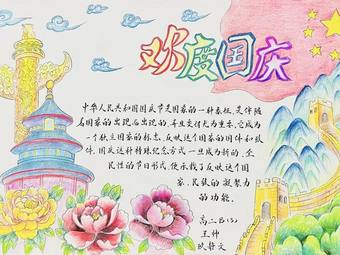 欢度国庆
中华人民共和国国庆节是国家的一种象征,是伴随
着国家的出现而出现的,并且变得尤为重要。它成为
一个独立国家的标志,反映这个国家的国体和政
体。国庆这种特殊纪念方式一旦成为新的、全
民性的节日形式,便承载了反映这个国
家、民族的凝聚力
的功能。
高二
王帅